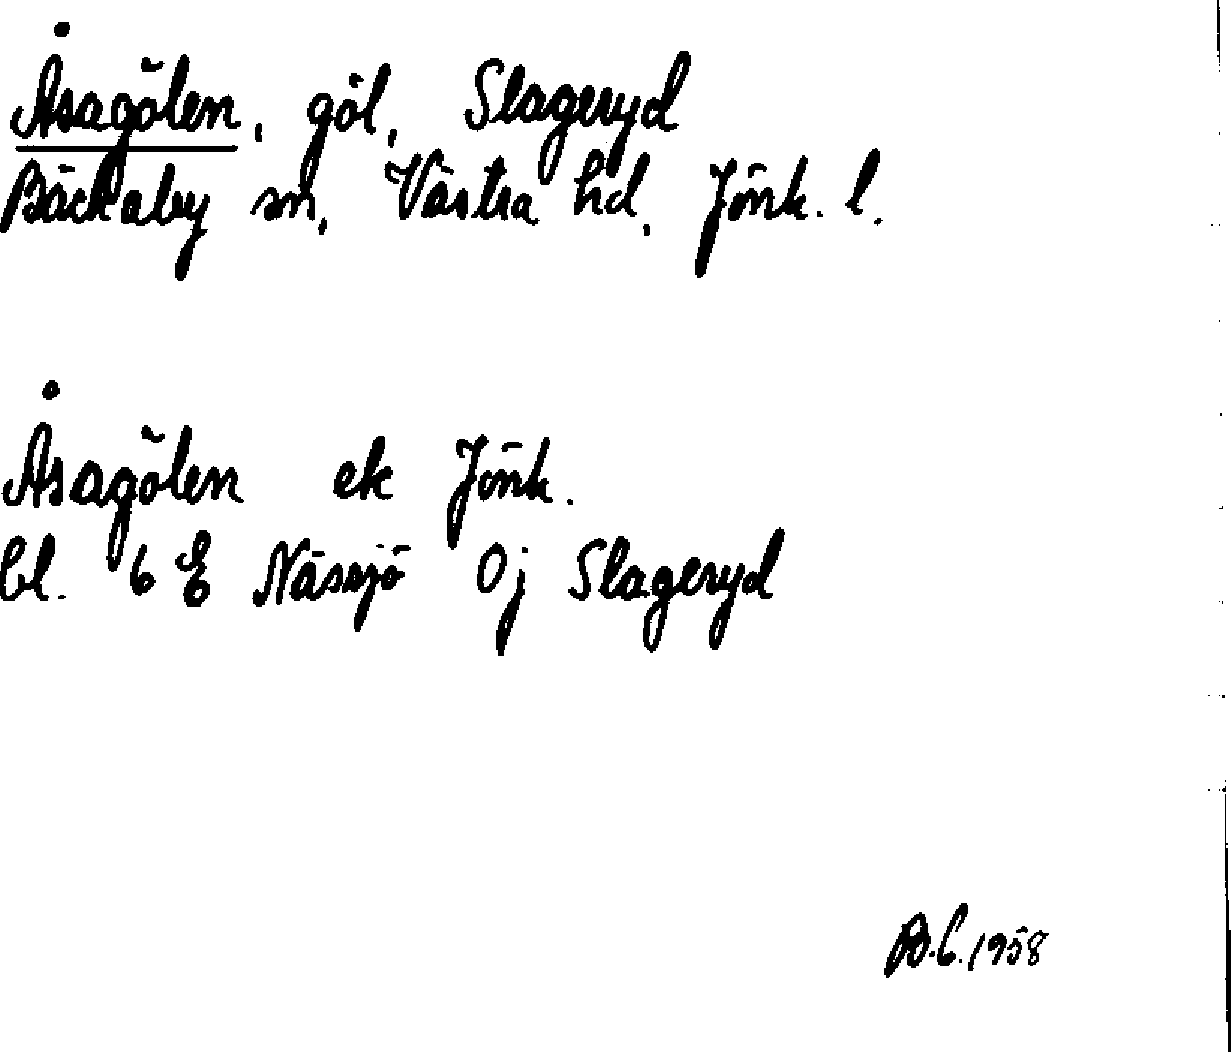 Åsagölen, göl, Slageryd
Bäckaby sn, Västra hd, Jönk. l.
Åsagölen ek Jönk.
bl. 6 E Nässjö 0j Slageryd
B.E. 1958